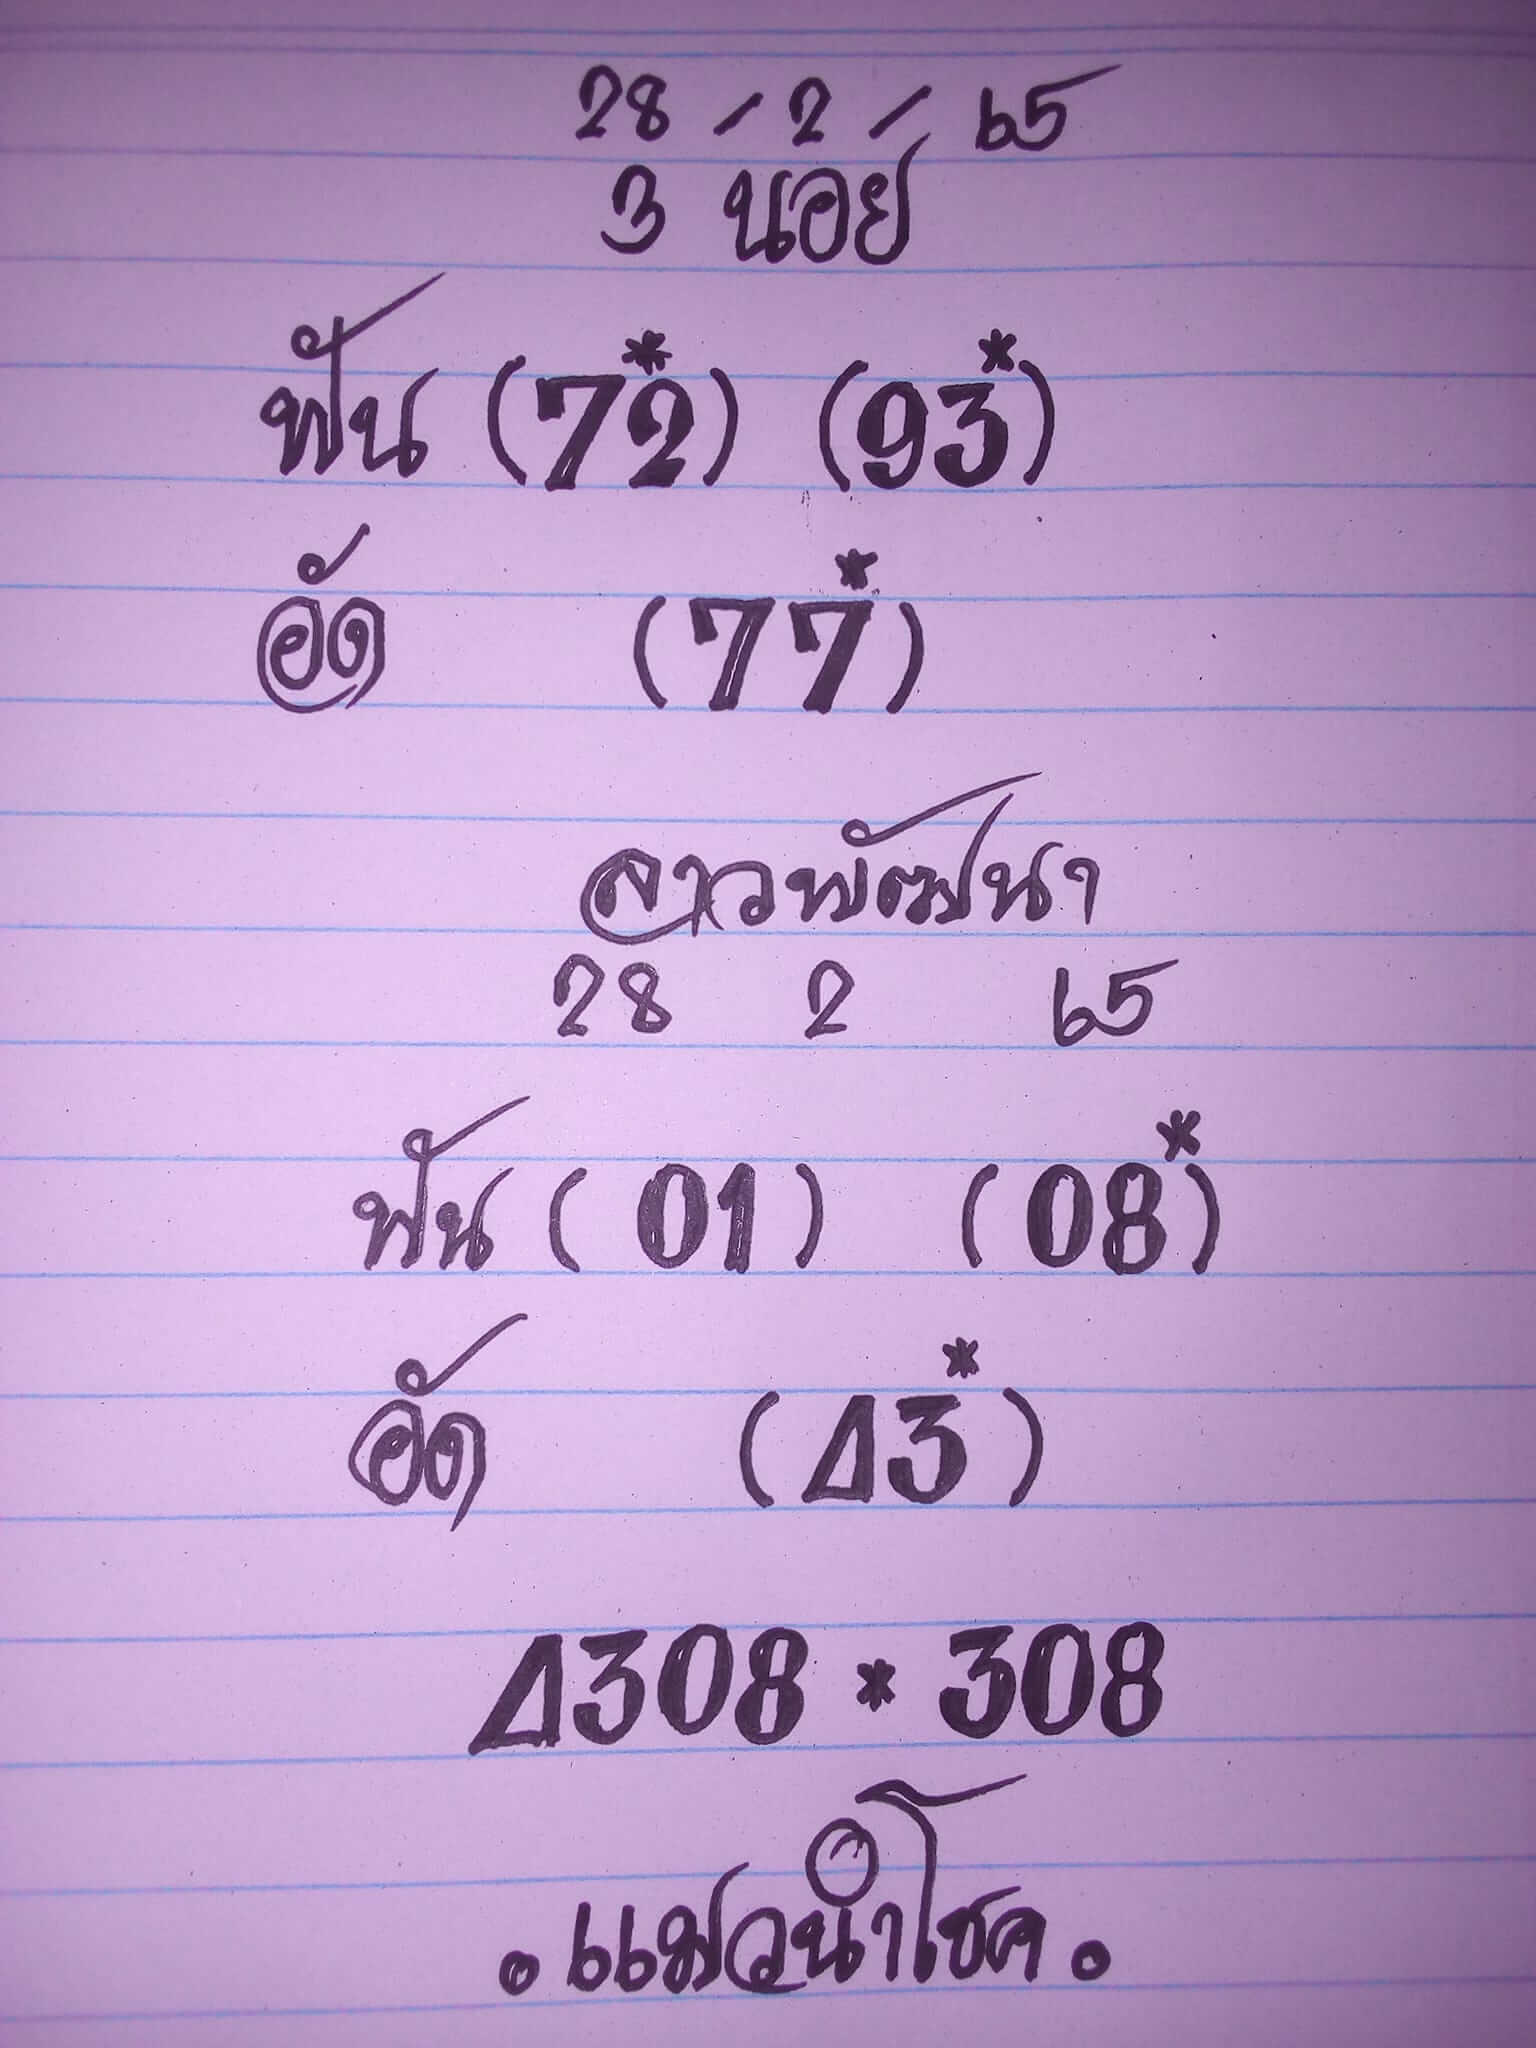 28 / 2 / 65
3 นอย
ฟัน (72*) (93*)
อัด (77*)
ลาวพัฒนา
28 2 65
ฟัน (01) (08*)
อัด (Δ3*)
Δ308 * 308
.แมวนำโชค.